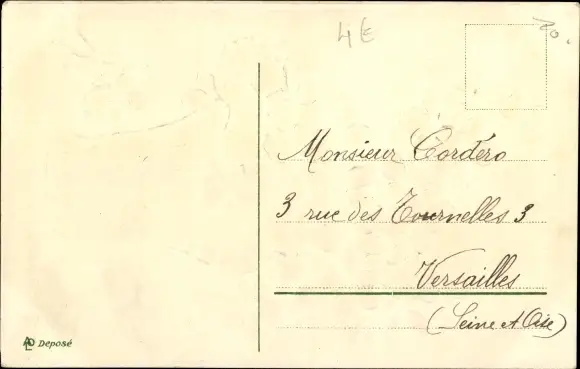 4€
20.
Monsieur Cordero
3 rue des Tournelles 3
Versailles
(Seine et Oise)
Deposé